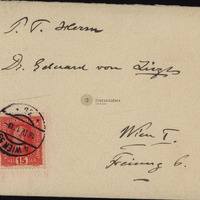 P. T. Herrn
Dr. Eduard von Liszt
Wien I.
Freiung 6.
WIEN
15